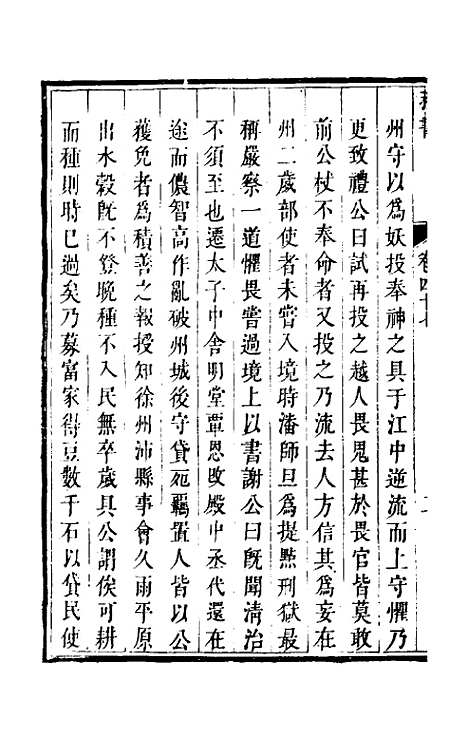 州守以爲妖投奉神之具于江中逆流而上守懼乃
更致禮公曰試再投之越人畏鬼甚於畏官皆莫敢
前公杖不奉命者又投之乃流去人方信其爲妄在
州二歲部使者未嘗入境時潘師旦爲提㸃刑獄最
稱嚴察一道懼畏嘗過境上以書謝公曰旣聞清治
不須至也遷太子中舍明堂覃恩改殿中丞代還在
途而儂智高作亂破州城後守貸死羈置人皆以公
獲免者爲積善之報授知徐州沛縣事會久雨平原
出水穀旣不登晩種不入民無卒歲具公謂俟可耕
而種則時已過矣乃募富家得豆數千石以貸民使
卷四十七